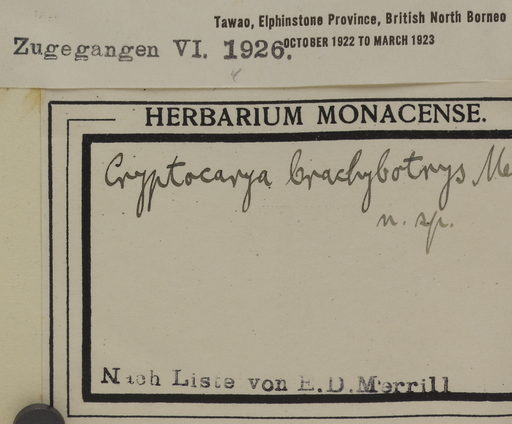 Tawao, Elphinstone Province, British North Borneo
OCTOBER 1922 TO MARCH 1923
Zugegangen VI. 1926.
HERBARIUM MONACENSE.
Cryptocarya brachybotrys Me
n. sp.
Nach Liste von E.D.Merrill